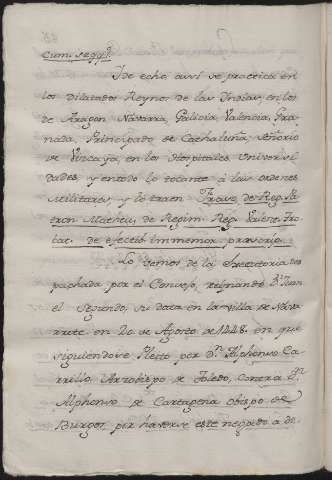 cum. seqq.s
I de echo assi se practica en
los dilatados Reynos de las Indias, en los
de Aragon Navarra, Galicia Valencia, Gra-
nada, Principado de Cathaluña, Señorio
de Vizcaya, en los Hospitales Universi-
dades, y en todo lo tocante à las ordenes
Militares, y lo traen Frasso de Reg. Pa-
tron. Matheu, de Regim. Reg. Valent.
de effectib immemor. præscrip.
Lo demos de la Executoria des-
pachada por el Consejo, reynando D.n Juan
el Segundo, su data en la villa de Nava-
rrete en 20 de Agosto de 1448. en que
siguiendose Pleito por D.n Alphonso Ca-
rrillo, Arzobispo de Toledo, contra D.n
Alphonso de Cartagena Obispo de
Burgos, por haverse este negado a do-